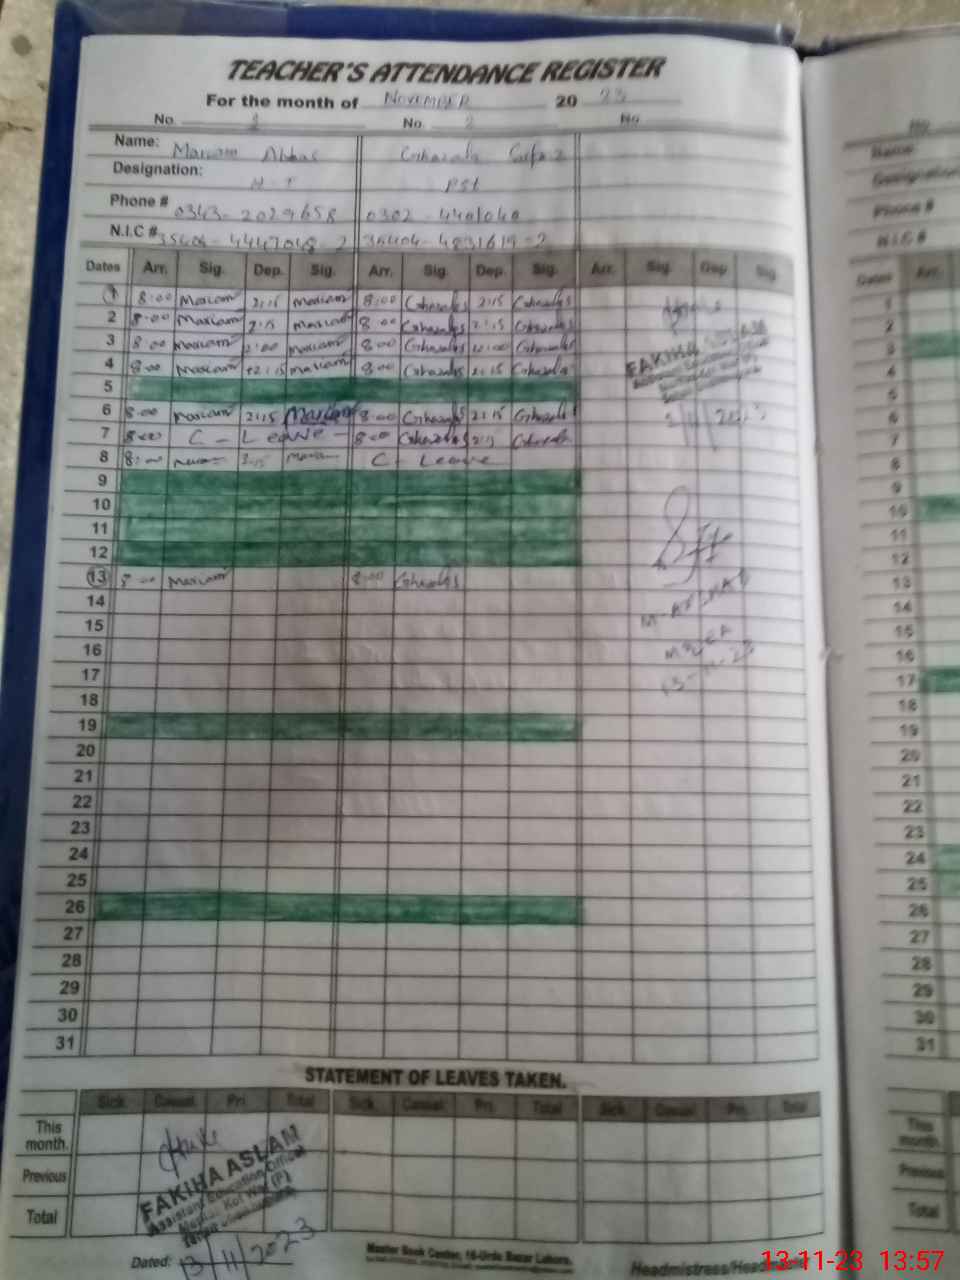 TEACHER'S ATTENDANCE REGISTER
For the month of NOVEMBER 20 23
No. 1 No. 2 No.
Name: Mariam Abbas Ghazala
Designation: PST
Phone # 0343-2029658 0302-
N.I.C #
Dates Arr. Sig. Dep. Sig. Arr. Sig. Dep. Sig. Arr. Sig. Dep. Sig.
1 8:00 Mariam 2:15 Mariam 8:00 Ghazala 2:15 Ghazala
2 8:00 Mariam 2:15 Mariam 8:00 Ghazala 2:15 Ghazala
3 8:00 Mariam 12:00 Mariam 8:00 Ghazala 12:00 Ghazala
4 8:00 Mariam 2:15 Mariam 8:00 Ghazala 2:15 Ghazala
FAKIHA ASLAM
5
6 8:00 Mariam 2:15 Mariam 8:00 Ghazala 2:15 Ghazala
7 8:00 C - Leave - 8:00 Ghazala 2:15 Ghazala
8 8:00 2:15 C - Leave
9
10
11
12
13 8:00 Mariam 8:00 Ghazala
14
15
16
17
13-11-23
18
19
20
21
22
23
24
25
26
27
28
29
30
31
STATEMENT OF LEAVES TAKEN.
Sick. Casual. Pri. Total Sick. Casual. Pri. Total Sick. Casual. Pri. Total
This month.
Previous
Total
FAKIHA ASLAM
Assistant Education Officer
Dated: 13/11/2023
Master Book Center, 16-Urdu Bazar Lahore.
Headmistress/
13-11-23 13:57
No
Name
Designation
Phone #
N.I.C #
Dates Arr.
1
2
3
4
5
6
7
8
9
10
11
12
13
14
15
16
17
18
19
20
21
22
23
24
25
26
27
28
29
30
31
This month.
Previous
Total